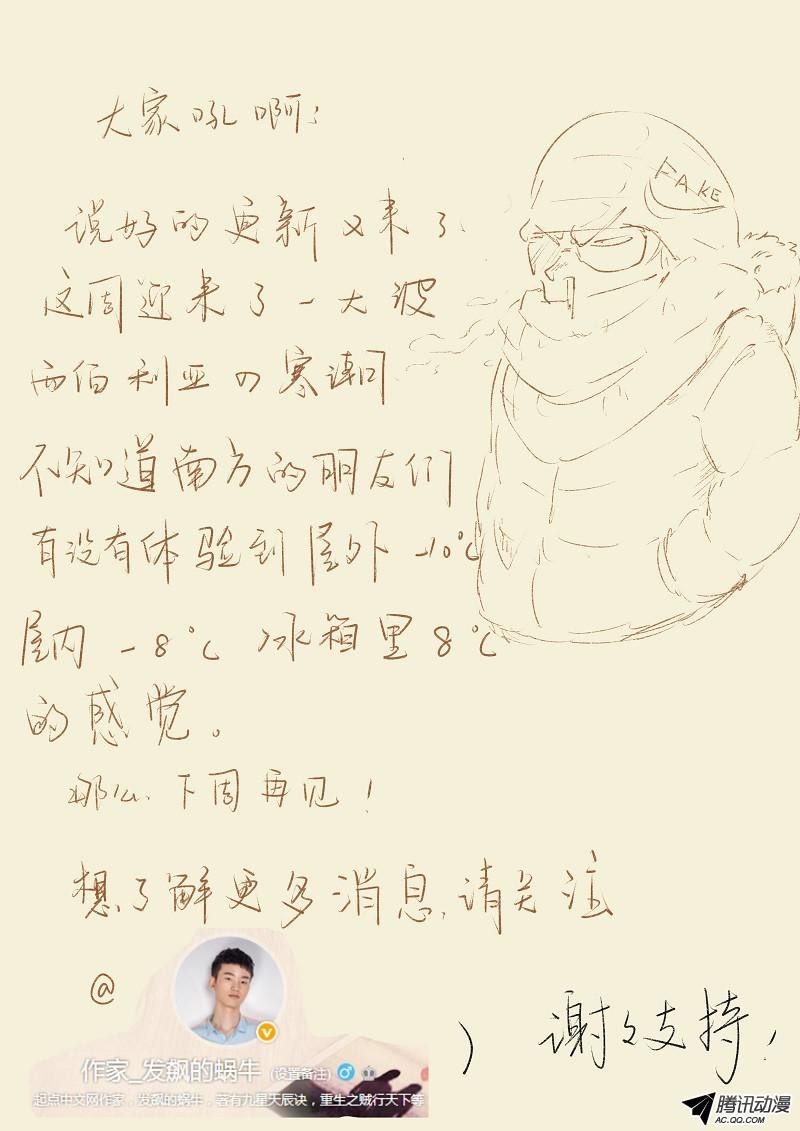 大家吼啊：
FAKE
说好的更新又来了
这周迎来了一大波
西伯利亚の寒潮
不知道南方的朋友们
有没有体验到屋外 -10℃
屋内 -8℃ 冰箱里 8℃
的感觉。
那么、下周再见！
想了解更多消息，请关注
@
作家_发飙的蜗牛 (设置备注)
起点中文网作家，发飙的蜗牛，著有九星天辰诀，重生之贼行天下等
) 谢々支持！
腾讯动漫
AC.QQ.COM